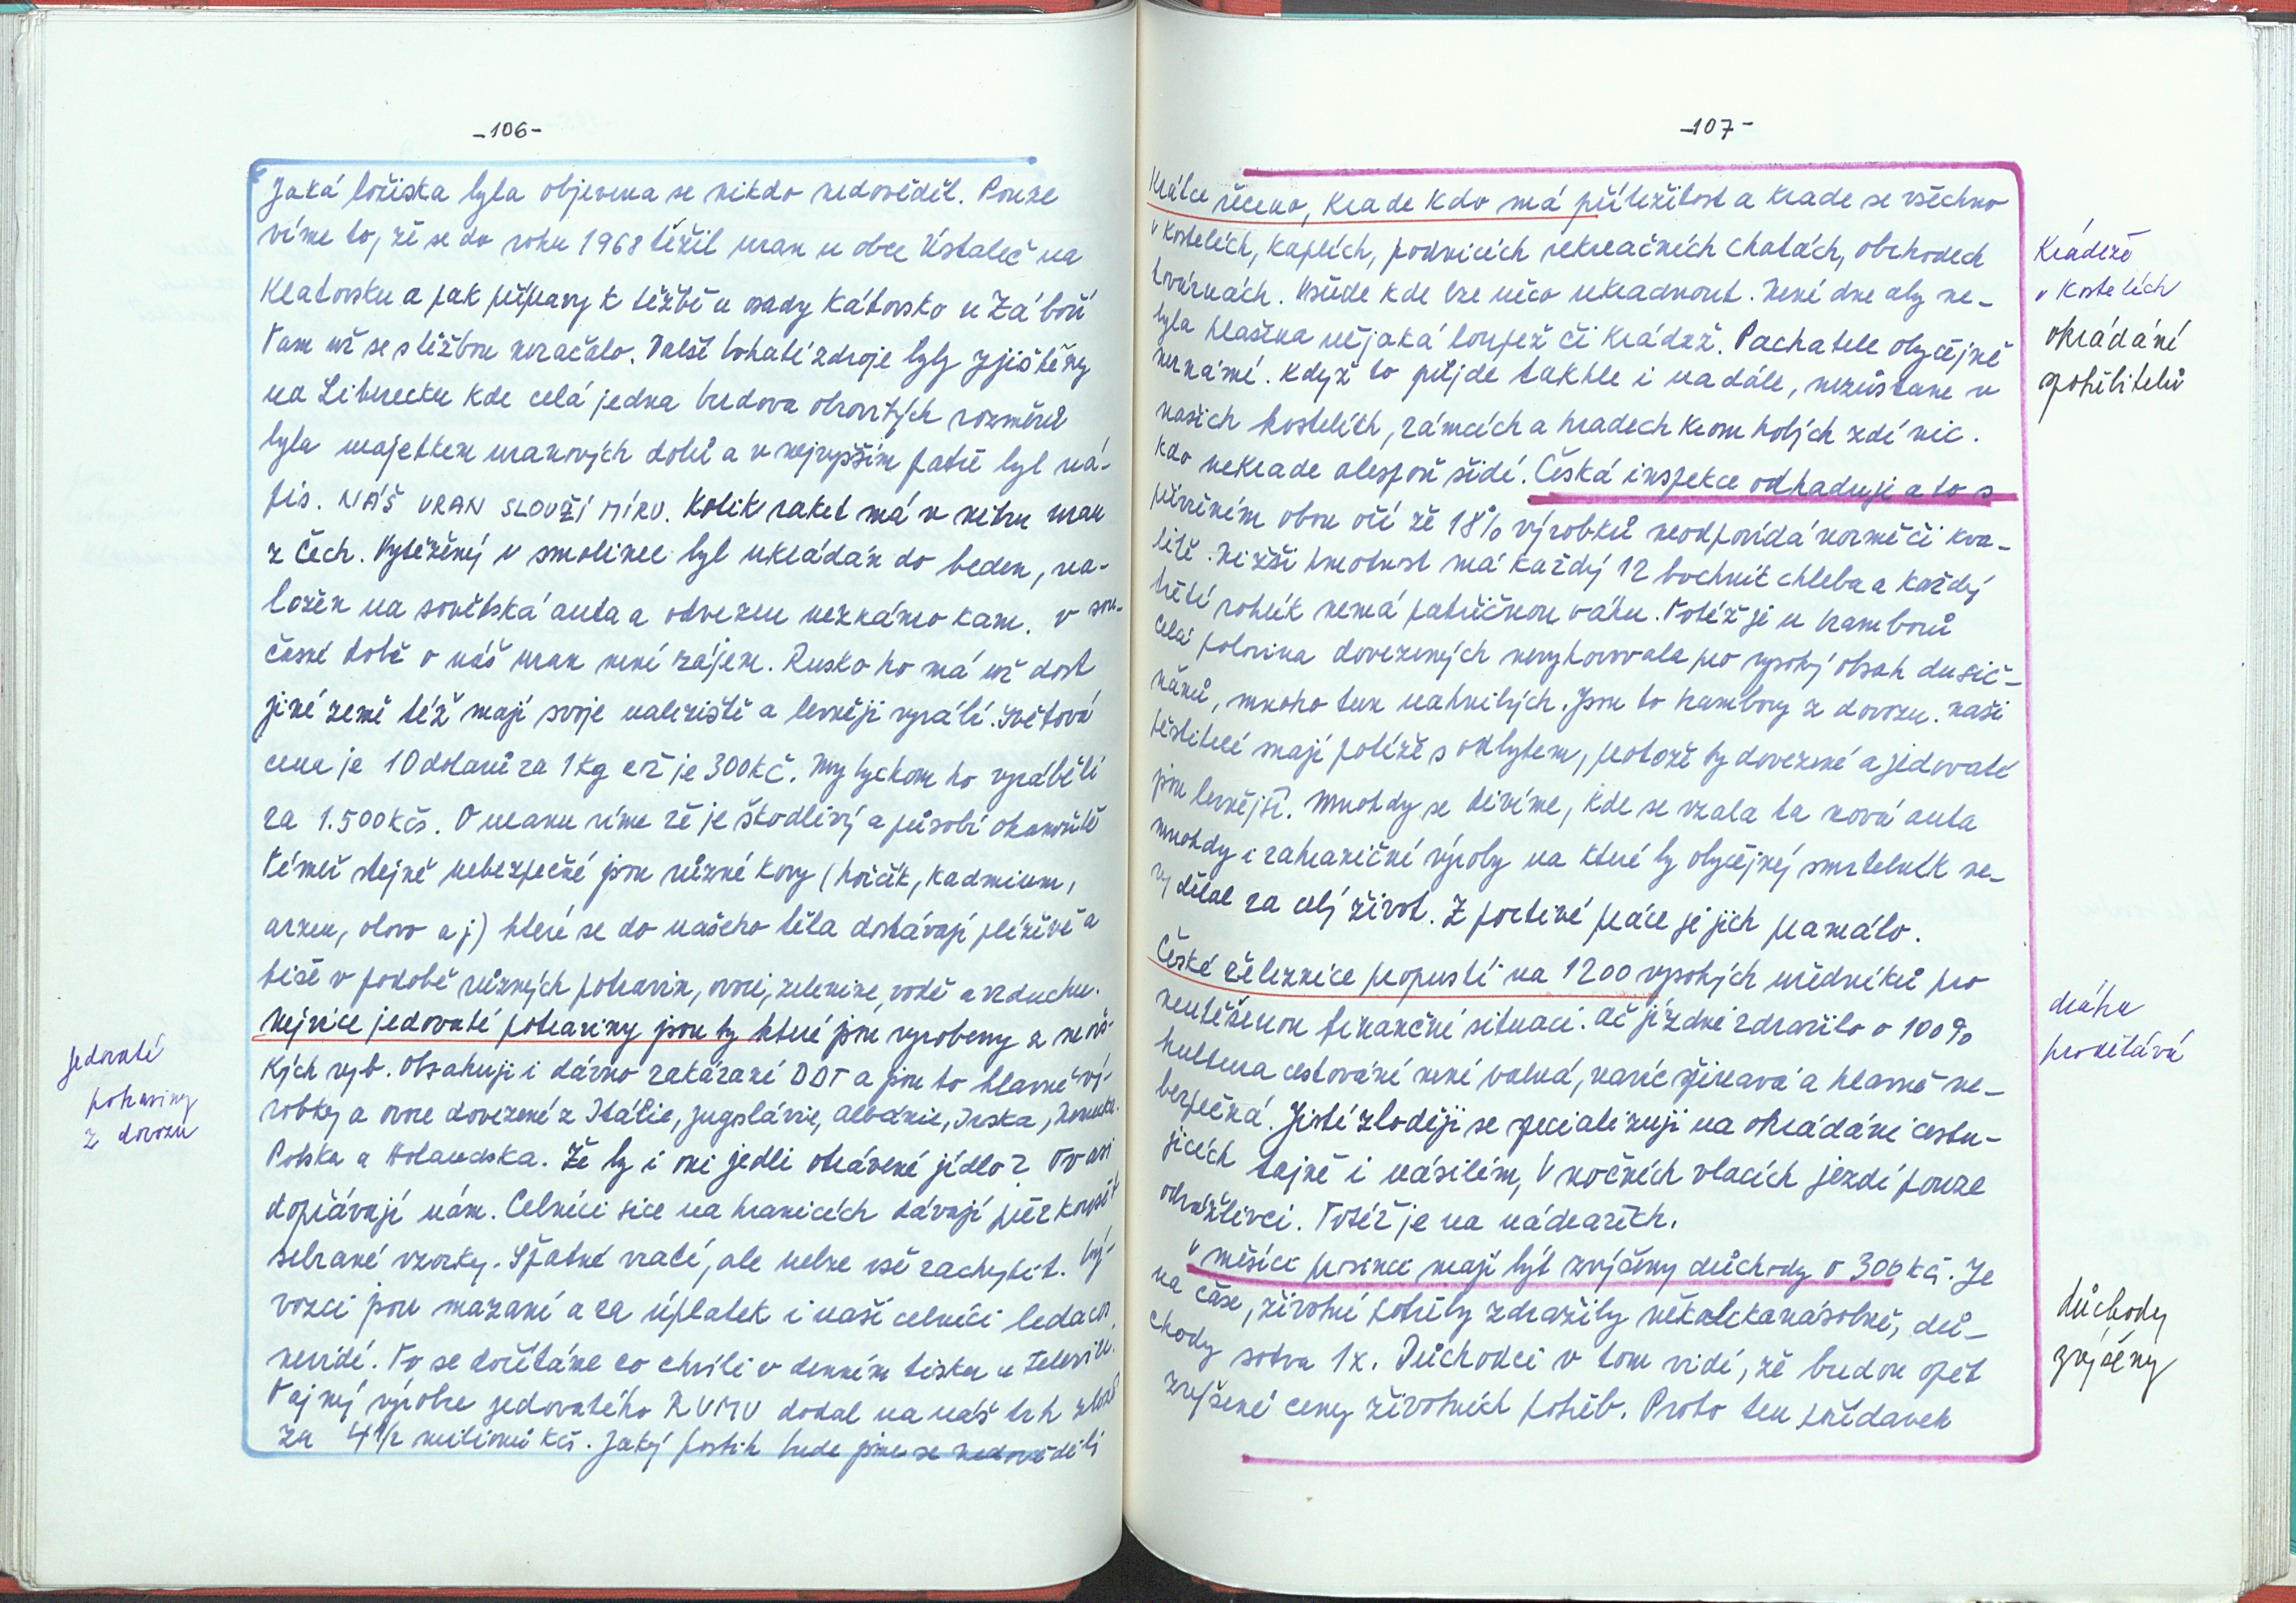 -106-
Jaká ložiska byla objevena se nikdo nedověděl. Pouze
víme to, že se do roku 1968 těžil uran u obce Ústaleč na
Klatovsku a pak přípravy k těžbě u osady Kátovsko u Záboří
Tam už se s těžbou nezačalo. Další bohaté zdroje byly zjištěny
na Liberecku kde celá jedna budova obrovitých rozměrů
byla majetkem uranových dolů a v nejvyšším patře byl ná-
pis. NÁŠ URAN SLOUŽÍ MÍRU. Kolik raket má v nitru uran
z Čech. Vytěžený v smolinec byl ukládán do beden, na-
ložen na sovětská auta a odvezen neznámo kam. V sou-
časné době o náš uran není zájem. Rusko ho má už dost
jiné země též mají svoje naleziště a levněji vyrábí. Světová
cena je 10 dolarů za 1 kg což je 300 Kč. My bychom ho vyráběli
za 1.500 Kčs. O uranu víme že je škodlivý a působí okamžitě
Téměř stejně nebezpečné jsou různé kovy (hořčík, kadmium,
arzen, olovo aj) které se do našeho těla dostávají plíživě a
tiše v podobě různých potravin, ovoci, zelenině, vodě a vzduchu.
Nejvíce jedovaté potraviny jsou ty které jsou vyrobeny z moř-
kých ryb. Obsahují i dávno zakázané DDT a jsou to hlavně vý-
robky a ovoce dovezené z Itálie, Jugoslávie, Albánie, Irska, Německa.
Polska a Holandska. Že by i oni jedli otrávené jídlo? To asi
dopřávají nám. Celníci sice na hranicích dávají přezkoušet
sebrané vzorky. Špatné vrátí, ale nelze vše zachytit. Vý-
vozci jsou mazaní a za úplatek i naši celníci ledacos
nevidí. To se dočítáme co chvíli v denním tisku a televizi.
Tajný výrobce jedovatého RUMU dodal na náš trh zboží
za 4 1/2 milionů Kčs. Jaký postih bude jsme se nedověděli
jedovaté
potraviny
z dovozu
-107-
Krátce řečeno, krade kdo má příležitost a krade se všechno
v kostelích, kaplích, podnicích rekreačních chatách, obchodech
továrnách. Všude kde lze něco ukradnout. Není dne aby ne-
byla hlášena nějaká loupež či krádež. Pachatele obyčejně
neznámé. Když to půjde takhle i nadále, nezůstane v
našich kostelích, zámcích a hradech krom holých zdí nic.
Kdo nekrade alespoň šidí. Česká inspekce odhaduje a to s
přivřeným obou očí že 18% výrobků neodpovídá normě či kva-
litě. Nižší hmotnost má každý 12 bochník chleba a každý
třetí rohlík nemá patřičnou váhu. Totéž je u bramborů
celá polovina dovezených nevyhovovala pro vysoký obsah dusič-
nanů, mnoho tun nahnilých. Jsou to brambory z dovozu. Naši
pěstitelé mají potíže s odbytem, protože ty dovezené a jedovaté
jsou levnější. Mnohdy se divíme, kde se vzala ta nová auta
mnohdy i zahraniční výroby na které by obyčejný smrtelník ne-
vydělal za celý život. Z poctivé práce je jich pramálo.
České železnice propustí na 1200 vysokých úředníků pro
neutěšenou finanční situaci. Ač jízdné zdražilo o 100%
kultura cestování není valná, navíc špinavá a hlavně ne-
bezpečná. Jistí zloději se specializují na okrádání cestu-
jících tajně i násilím, V nočních vlacích jezdí pouze
odvážlivci. Totéž je na nádražích.
V měsíci prosinci mají být zvýšeny důchody o 300 Kč. Je
na čase, životní potřeby zdražily několikanásobně, dů-
chody sotva 1x. Důchodci v tom vidí, že budou opět
zvýšené ceny životních potřeb. Proto ten přídavek
Krádeže
v kostelích
okrádání
spotřebitelů
dráha
prodělává
důchody
zvýšeny